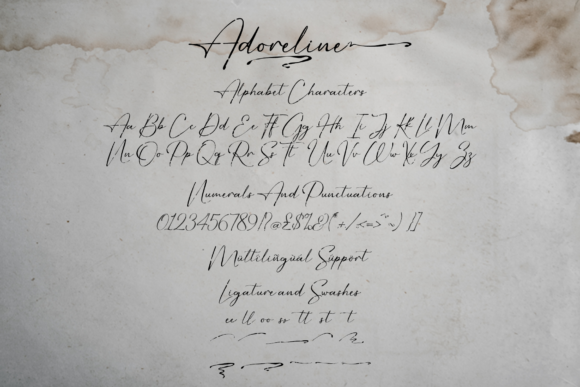 Adoreline
Alphabet Characters
Aa Bb Cc Dd Ee Ff Gg Hh Ii Jj Kk Ll Mm
Nn Oo Pp Qq Rr Ss Tt Uu Vv Ww Xx Yy Zz
Numerals And Punctuations
0123456789!?@£$%&(*+/<=>~)[]
Mültilingüäl Süpport
Ligature and Swashes
ee ll oo ss tt st t